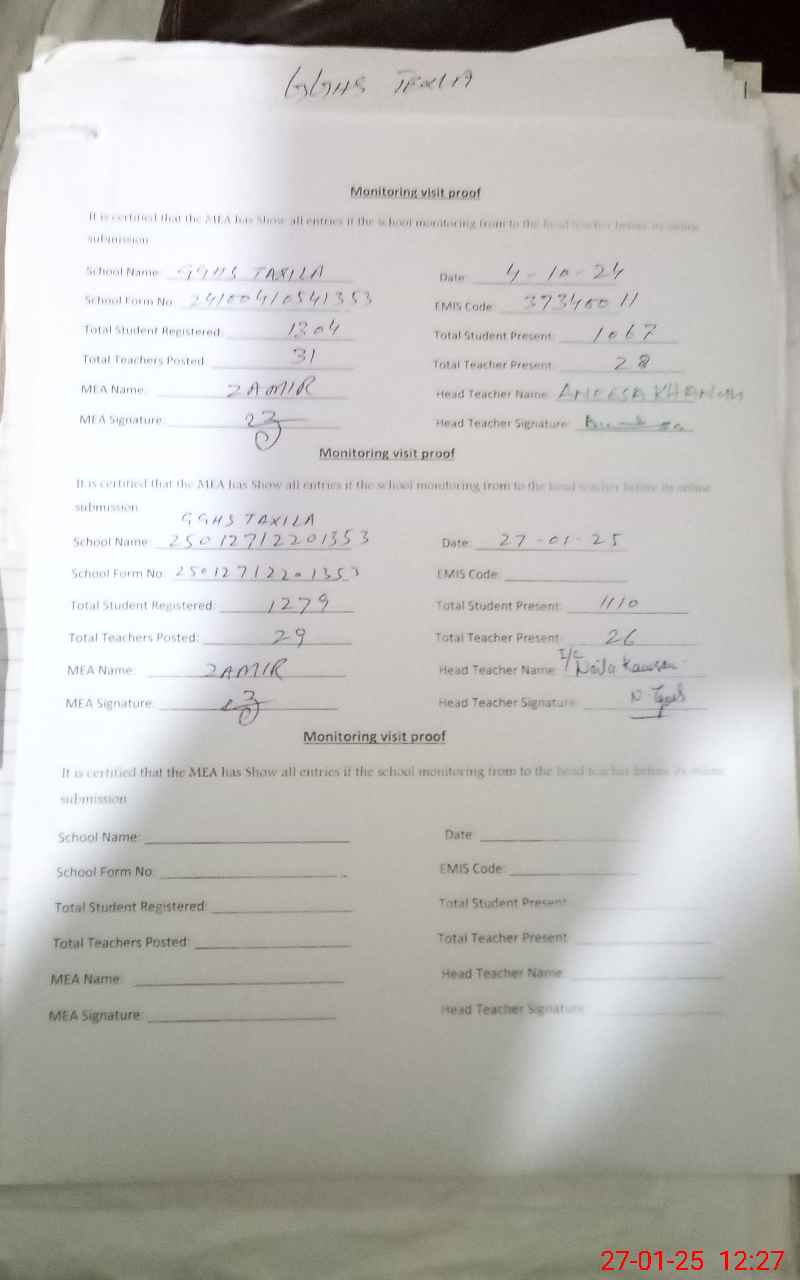 GGHS TEXILA
Monitoring visit proof
It is certified that the MEA has Show all entries if the school monitoring from to the head teacher before its online
submission
School Name: GGHS TAXILA Date: 4-10-24
School Form No: 24100410541353 EMIS Code: 37340011
Total Student Registered: 1304 Total Student Present: 1067
Total Teachers Posted: 31 Total Teacher Present: 28
MEA Name: ZAMIR Head Teacher Name: ANEESA KHANUM
MEA Signature: Head Teacher Signature:
Monitoring visit proof
It is certified that the MEA has Show all entries if the school monitoring from to the head teacher before its online
submission
GGHS TAXILA
School Name: 25012712201353 Date: 27-01-25
School Form No: 25012712201353 EMIS Code:
Total Student Registered: 1279 Total Student Present: 1110
Total Teachers Posted: 29 Total Teacher Present: 26
MEA Name: ZAMIR Head Teacher Name: I/C Naila Kausar
MEA Signature: Head Teacher Signature:
Monitoring visit proof
It is certified that the MEA has Show all entries if the school monitoring from to the head teacher before its online
submission
School Name: Date:
School Form No: EMIS Code:
Total Student Registered: Total Student Present:
Total Teachers Posted: Total Teacher Present:
MEA Name: Head Teacher Name:
MEA Signature: Head Teacher Signature:
27-01-25 12:27